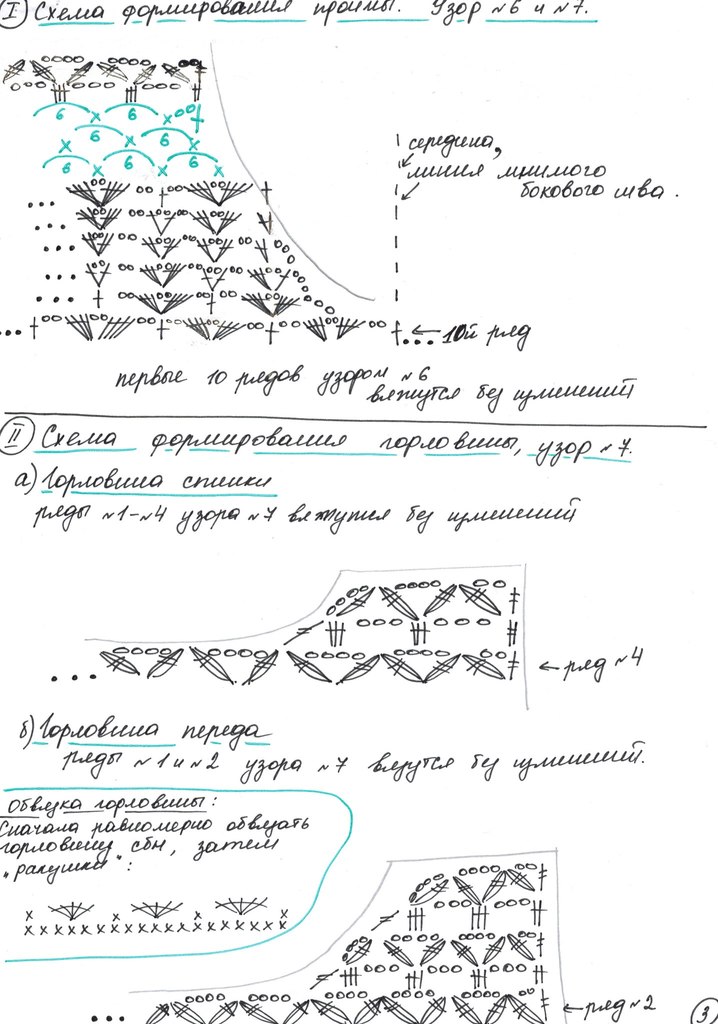 I Схема формирования проймы. Узор №6 и №7.
6 6
6 6
6 6 6
середина,
линия мнимого
бокового шва.
10й ряд
первые 10 рядов узором №6
вяжутся без изменений
II Схема формирования горловины, узор №7.
а) Горловина спинки
ряды №1-№4 узора №7 вяжутся без изменений
ряд №4
б) Горловина переда
ряды №1 и №2 узора №7 вяжутся без изменений.
Обвязка горловины:
Сначала равномерно обвязать
горловину сбн, затем
„ракушки":
ряд №2
3